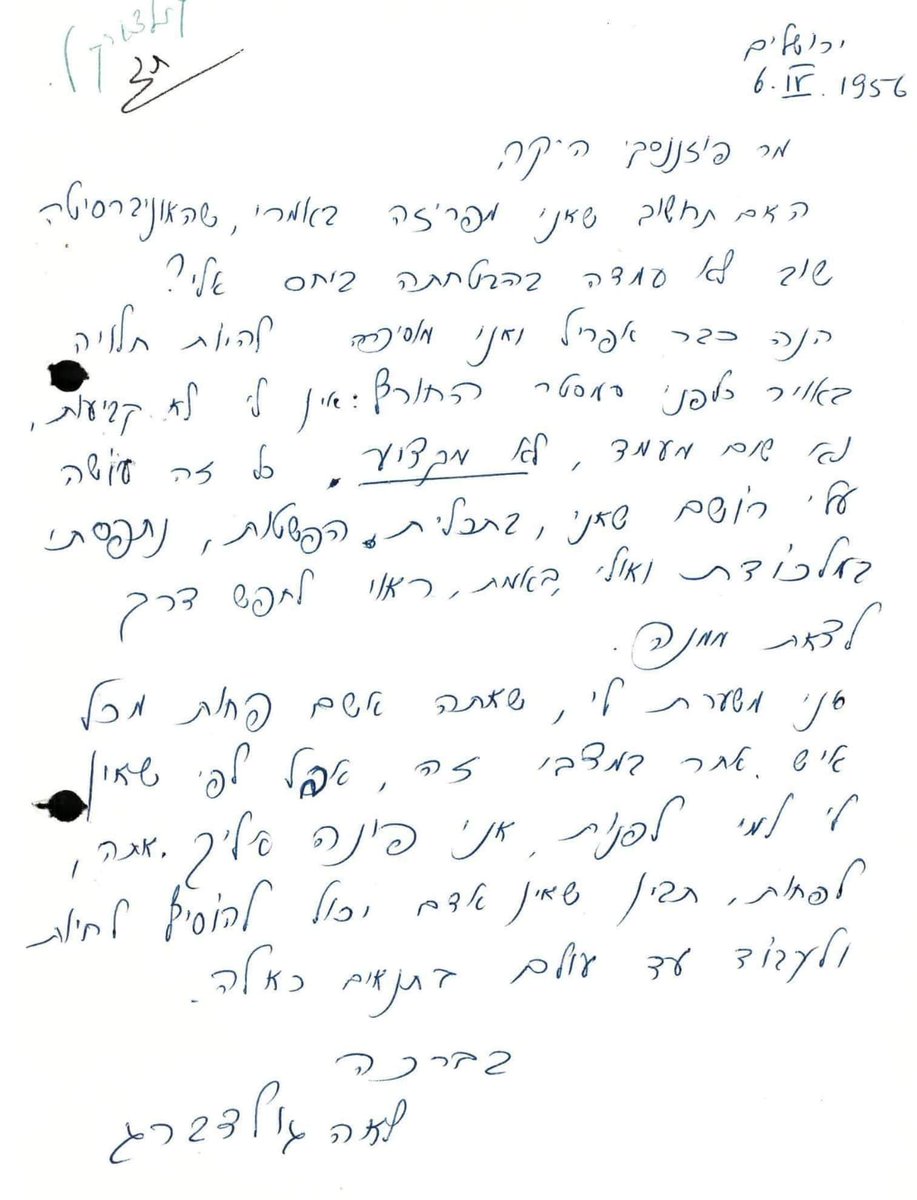 ירושלים
6.IV.1956
מר פוזננסקי היקר,
האם תחשוב שאני מפריזה באמרי, שהאוניברסיטה
שוב לא עמדה בהבטחתה ביחס אלי?
הנה כבר אפריל ואני מוסיפה להיות תלויה
באויר כלפני סמסטר החורף: אין לי לא קביעות,
לא שום מעמד, לא מקצוע. כל זה עושה
עלי רושם שאני, בתכלית הפשטות, נתפסתי
במלכודת ואולי, באמת, ראוי לחפש דרך
לצאת ממנה.
אני משערת לי, שאתה אשם פחות מכל
איש אחר במצבי זה, אבל לפי שאין
לי למי לפנות, אני פונה אליך. אתה,
לפחות, תבין שאין אדם יכול להוסיף לחיות
ולעבוד עד עולם בתנאים כאלה.
בברכה
לאה גולדברג